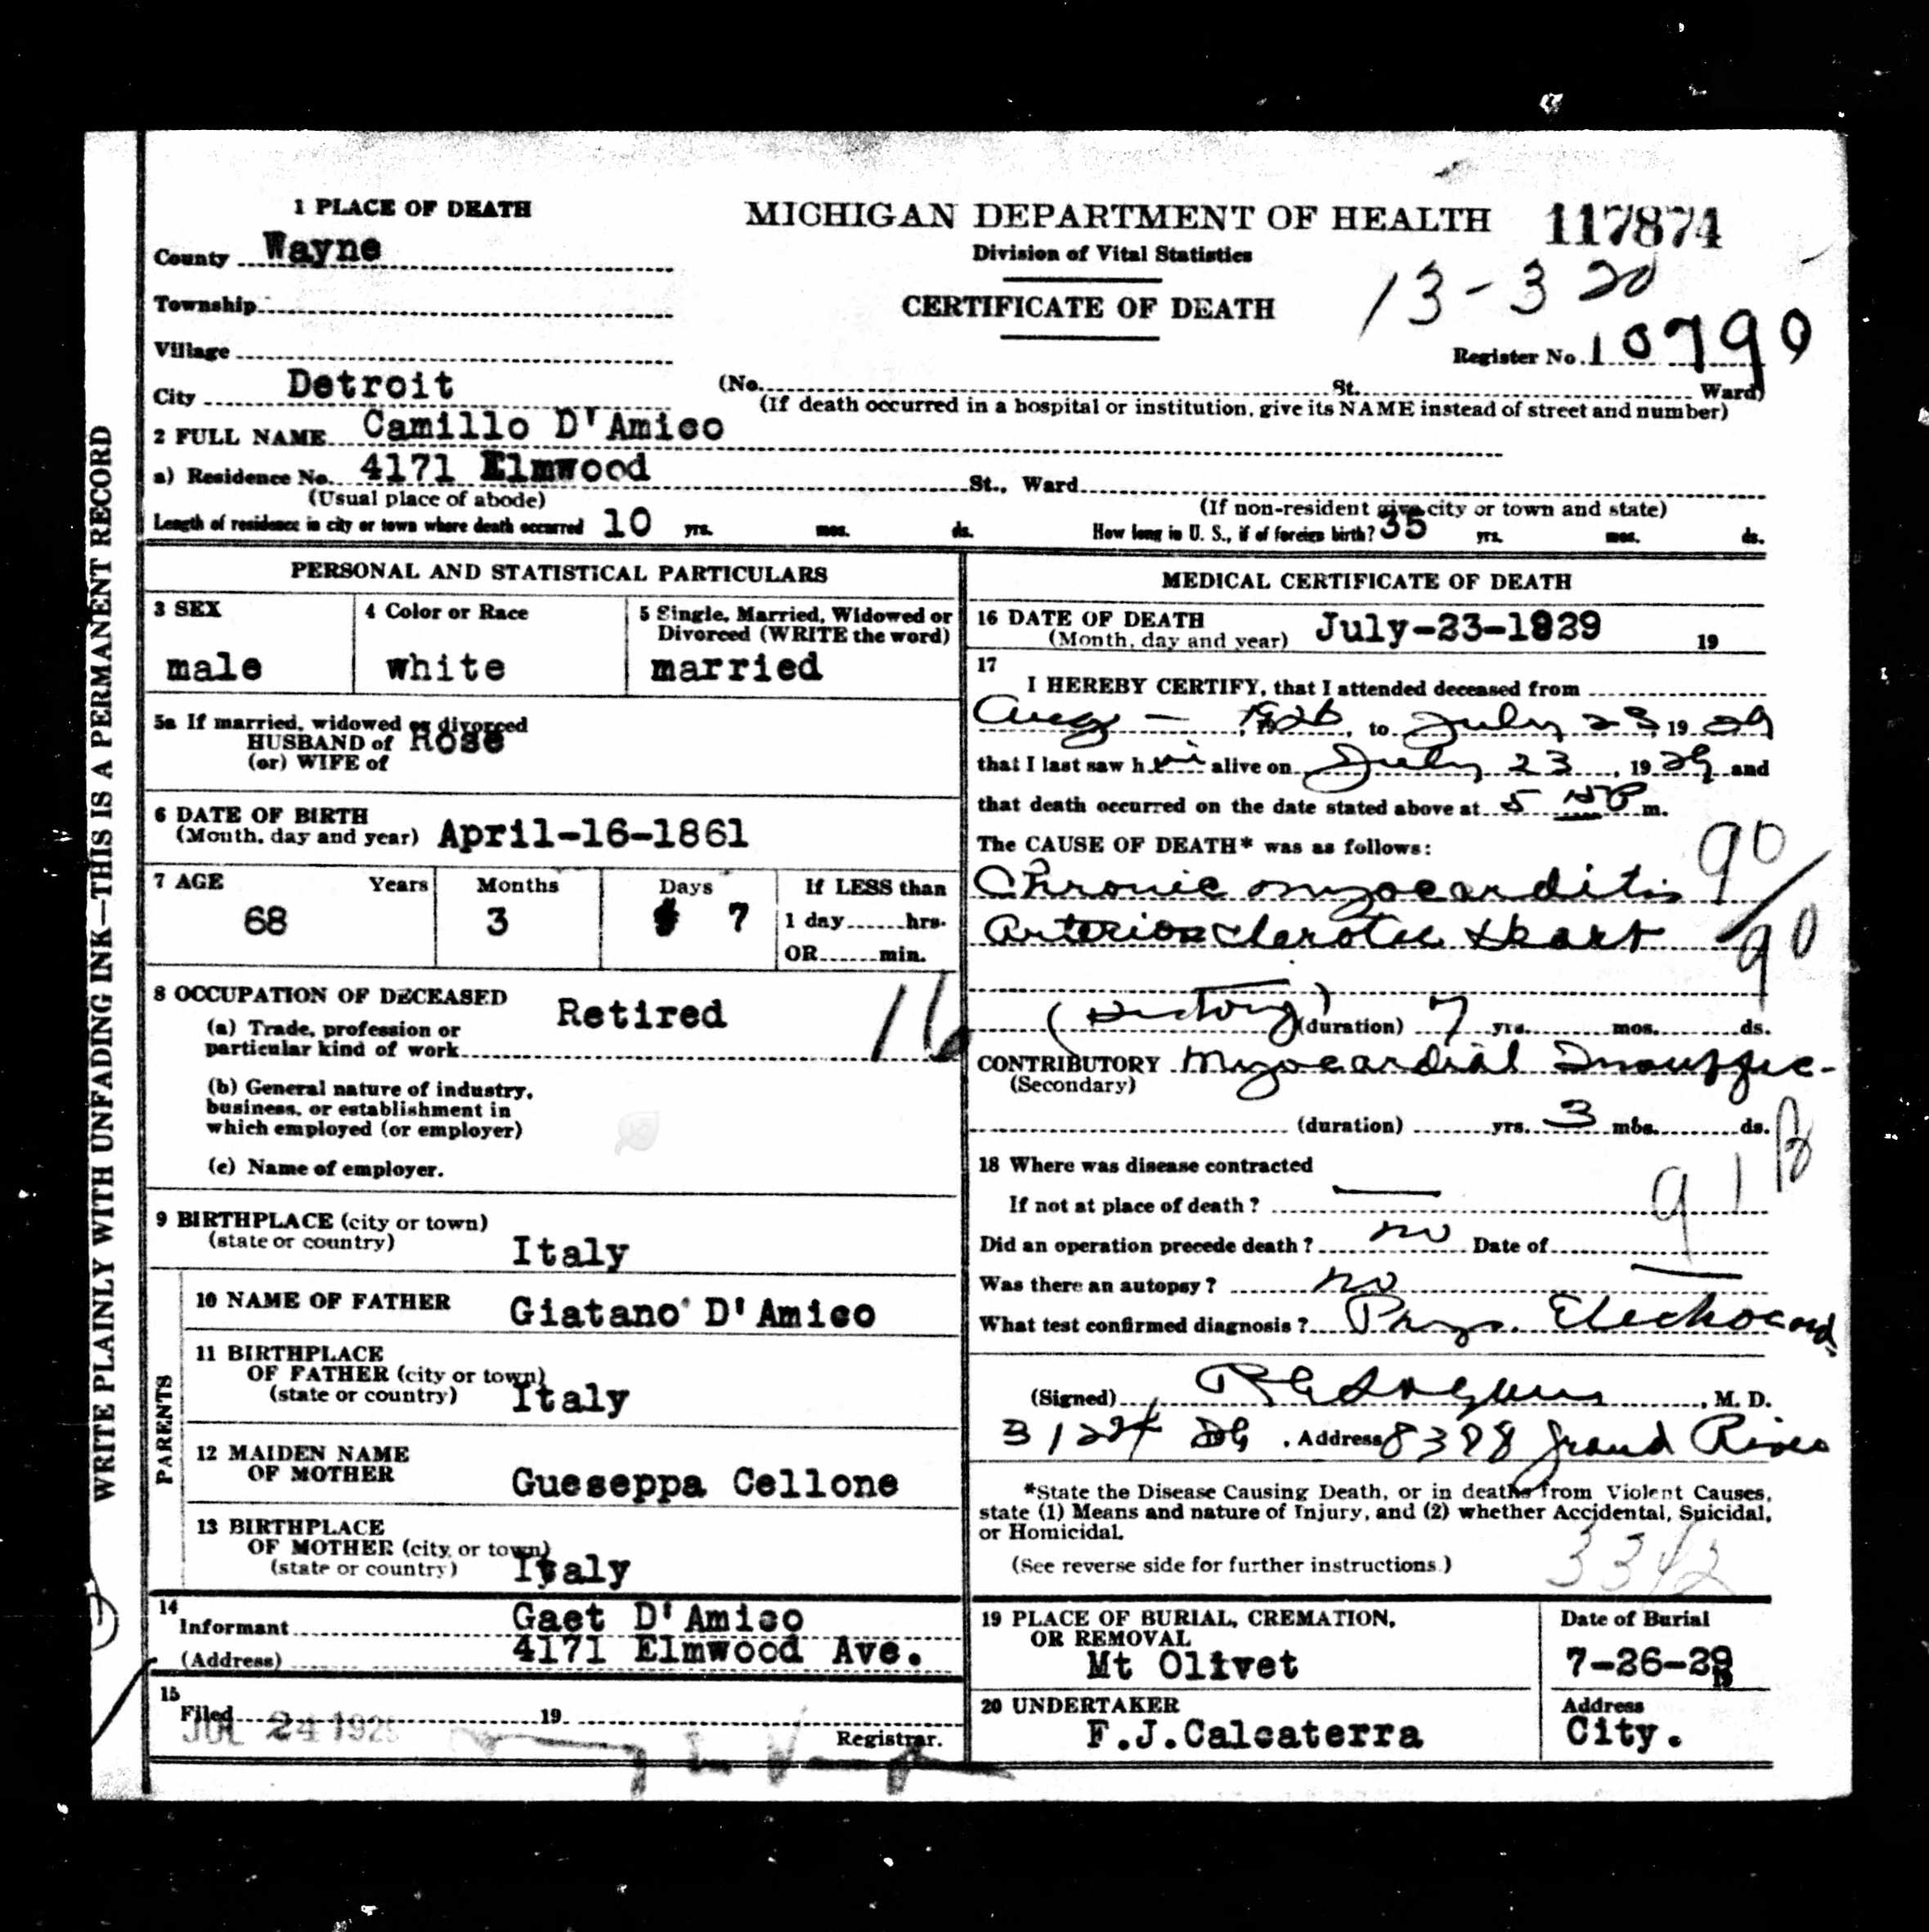 1 PLACE OF DEATH
MICHIGAN DEPARTMENT OF HEALTH 117874
County Wayne
Division of Vital Statistics
13-3 20
Township
CERTIFICATE OF DEATH
Village
Register No. 10790
City Detroit (No. St. Ward)
(If death occurred in a hospital or institution, give its NAME instead of street and number)
2 FULL NAME Camillo D'Amico
a) Residence No. 4171 Elmwood St., Ward
(Usual place of abode) (If non-resident give city or town and state)
Length of residence in city or town where death occurred 10 yrs. mos. ds. How long in U. S., if of foreign birth? 35 yrs. mos. ds.
WRITE PLAINLY WITH UNFADING INK—THIS IS A PERMANENT RECORD
PERSONAL AND STATISTICAL PARTICULARS
3 SEX
male
4 Color or Race
white
5 Single, Married, Widowed or
Divorced (WRITE the word)
married
5a If married, widowed or divorced
HUSBAND of Rose
(or) WIFE of
6 DATE OF BIRTH
(Month, day and year) April-16-1861
7 AGE Years Months Days If LESS than
68 3 7 1 day hrs.
OR min.
8 OCCUPATION OF DECEASED Retired
(a) Trade, profession or
particular kind of work 16
(b) General nature of industry,
business, or establishment in
which employed (or employer)
(c) Name of employer.
9 BIRTHPLACE (city or town)
(state or country) Italy
PARENTS
10 NAME OF FATHER Giatano D'Amico
11 BIRTHPLACE
OF FATHER (city or town)
(state or country) Italy
12 MAIDEN NAME
OF MOTHER Gueseppa Cellone
13 BIRTHPLACE
OF MOTHER (city or town)
(state or country) Italy
14
Informant Gaet D'Amico
(Address) 4171 Elmwood Ave.
15
Filed JUL 24 1929 19
Registrar.
MEDICAL CERTIFICATE OF DEATH
16 DATE OF DEATH
(Month, day and year) July-23-1929 19
17
I HEREBY CERTIFY, that I attended deceased from
Aug - , 1926, to July 23, 19 29
that I last saw h im alive on July 23, 19 29 and
that death occurred on the date stated above at 5 P m.
The CAUSE OF DEATH* was as follows:
Chronic myocarditis 90
Arteriosclerotic Heart 90
(History) (duration) 7 yrs. mos. ds.
CONTRIBUTORY Myocardial Insuffic-
(Secondary)
(duration) yrs. 3 mos. ds.
18 Where was disease contracted
If not at place of death? 91B
Did an operation precede death? no Date of
Was there an autopsy? no
What test confirmed diagnosis? Phys. Electrocard-
(Signed) , M. D.
Address Grand River
*State the Disease Causing Death, or in deaths from Violent Causes,
state (1) Means and nature of Injury, and (2) whether Accidental, Suicidal,
or Homicidal.
(See reverse side for further instructions.)
3342
19 PLACE OF BURIAL, CREMATION,
OR REMOVAL
Mt Olivet
Date of Burial
7-26-29
20 UNDERTAKER
F.J.Calcaterra
Address
City.